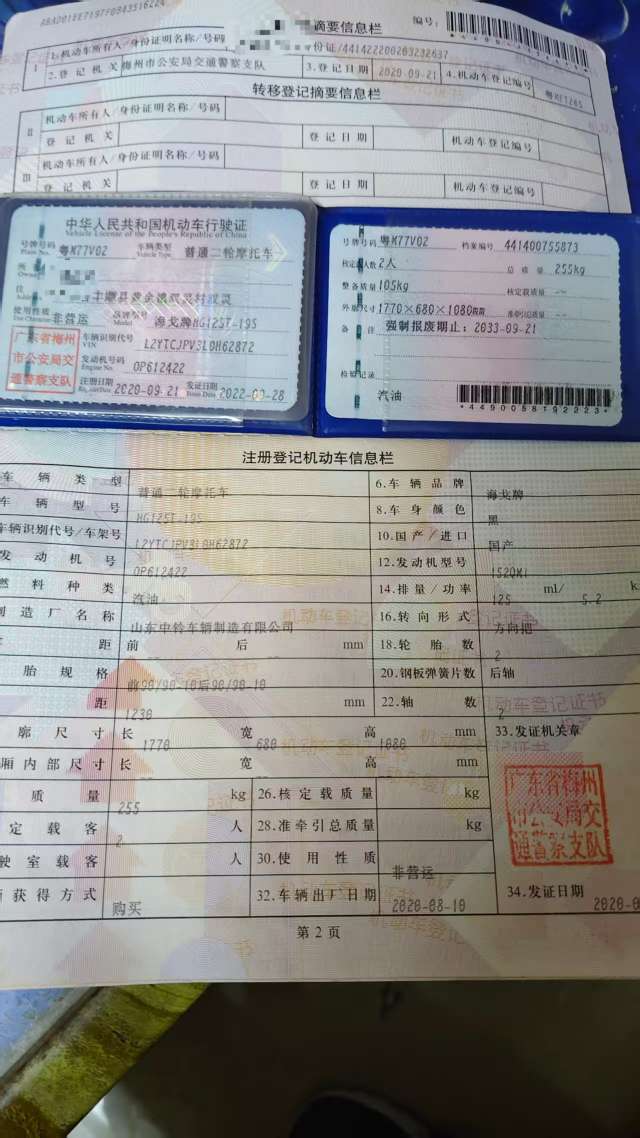 摘要信息栏
编号:
1.机动车所有人/身份证明名称/号码
份证/441422200203232637
2.登记机关 梅州市公安局交通警察支队 3.登记日期 2020-09-21 4.机动车登记编号
转移登记摘要信息栏
II 机动车所有人/身份证明名称/号码
登记机关 登记日期 机动车登记编号
III 机动车所有人/身份证明名称/号码
登记机关 登记日期 机动车登记编号
中华人民共和国机动车行驶证
Vehicle License of the People's Republic of China
号牌号码 粤M77V02 车辆类型 普通二轮摩托车
Plate No. Vehicle Type
Owner
使用性质 非营运 品牌型号 海戈牌HG125T-19S
Model
广东省梅州市公安局交通警察支队
车辆识别代号 L2YTCJPV3L0H62872
VIN
发动机号码 OP612422
Engine No.
注册日期 2020-09-21 发证日期 2022-09-28
号牌号码 粤M77V02 档案编号 441400755873
核定载人数 2人 总质量 255kg
整备质量 105kg 核定载质量 --
外廓尺寸 1770×680×1080mm 准牵引总质量 --
备注 强制报废期止:2033-09-21
检验记录
汽油
*4490058192223*
注册登记机动车信息栏
车辆类型 普通二轮摩托车 6.车辆品牌 海戈牌
车辆型号 HG125T-19S 8.车身颜色 黑
车辆识别代号/车架号 L2YTCJPV3L0H62872 10.国产/进口 国产
发动机号 OP612422 12.发动机型号 152QMI
燃料种类 汽油 14.排量/功率 125 ml/ 5.2 k
制造厂名称 山东中铃车辆制造有限公司 16.转向形式 方向把
距 前 后 mm 18.轮胎数 2
胎规格 前90/90-10后90/90-10 20.钢板弹簧片数 后轴
距 1230 mm 22.轴数 2
廓尺寸 长 1770 宽 680 高 1080 mm 33.发证机关章
厢内部尺寸 长 宽 高 mm
质量 255 kg 26.核定载质量 kg
定载客 2 人 28.准牵引总质量 kg
驶室载客 人 30.使用性质 非营运
获得方式 购买 32.车辆出厂日期 2020-08-10 34.发证日期 2020-0
广东省梅州市公安局交通警察支队
第2页